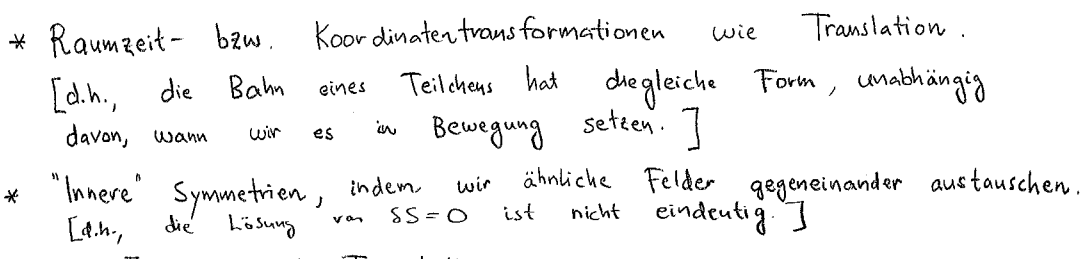 * Raumzeit- bzw. Koordinatentransformationen wie Translation.
[d.h., die Bahn eines Teilchens hat diegleiche Form, unabhängig
davon, wann wir es in Bewegung setzen.]
* "Innere" Symmetrien, indem wir ähnliche Felder gegeneinander austauschen.
[d.h., die Lösung von δS=0 ist nicht eindeutig.]